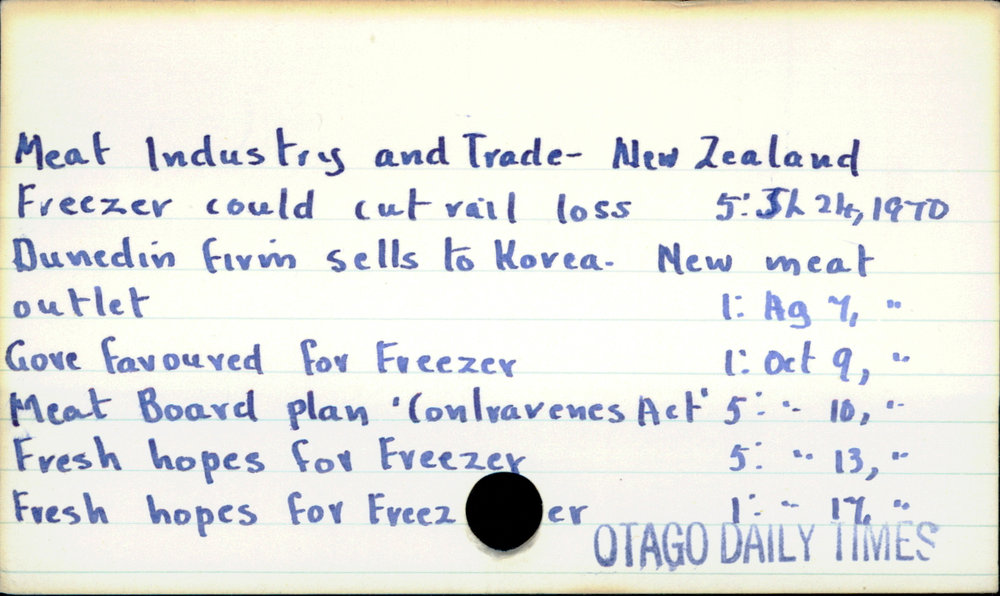 Meat Industry and Trade- New Zealand
Freezer could cut rail loss 5: Jl 24, 1970
Dunedin firm sells to Korea- New meat
outlet 1: Ag 7, "
Gore favoured for Freezer 1: Oct 9, "
Meat Board plan 'Contravenes Act' 5: " 10, "
Fresh hopes for Freezer 5: " 13, "
Fresh hopes for Freezer 1: " 17, "
OTAGO DAILY TIMES